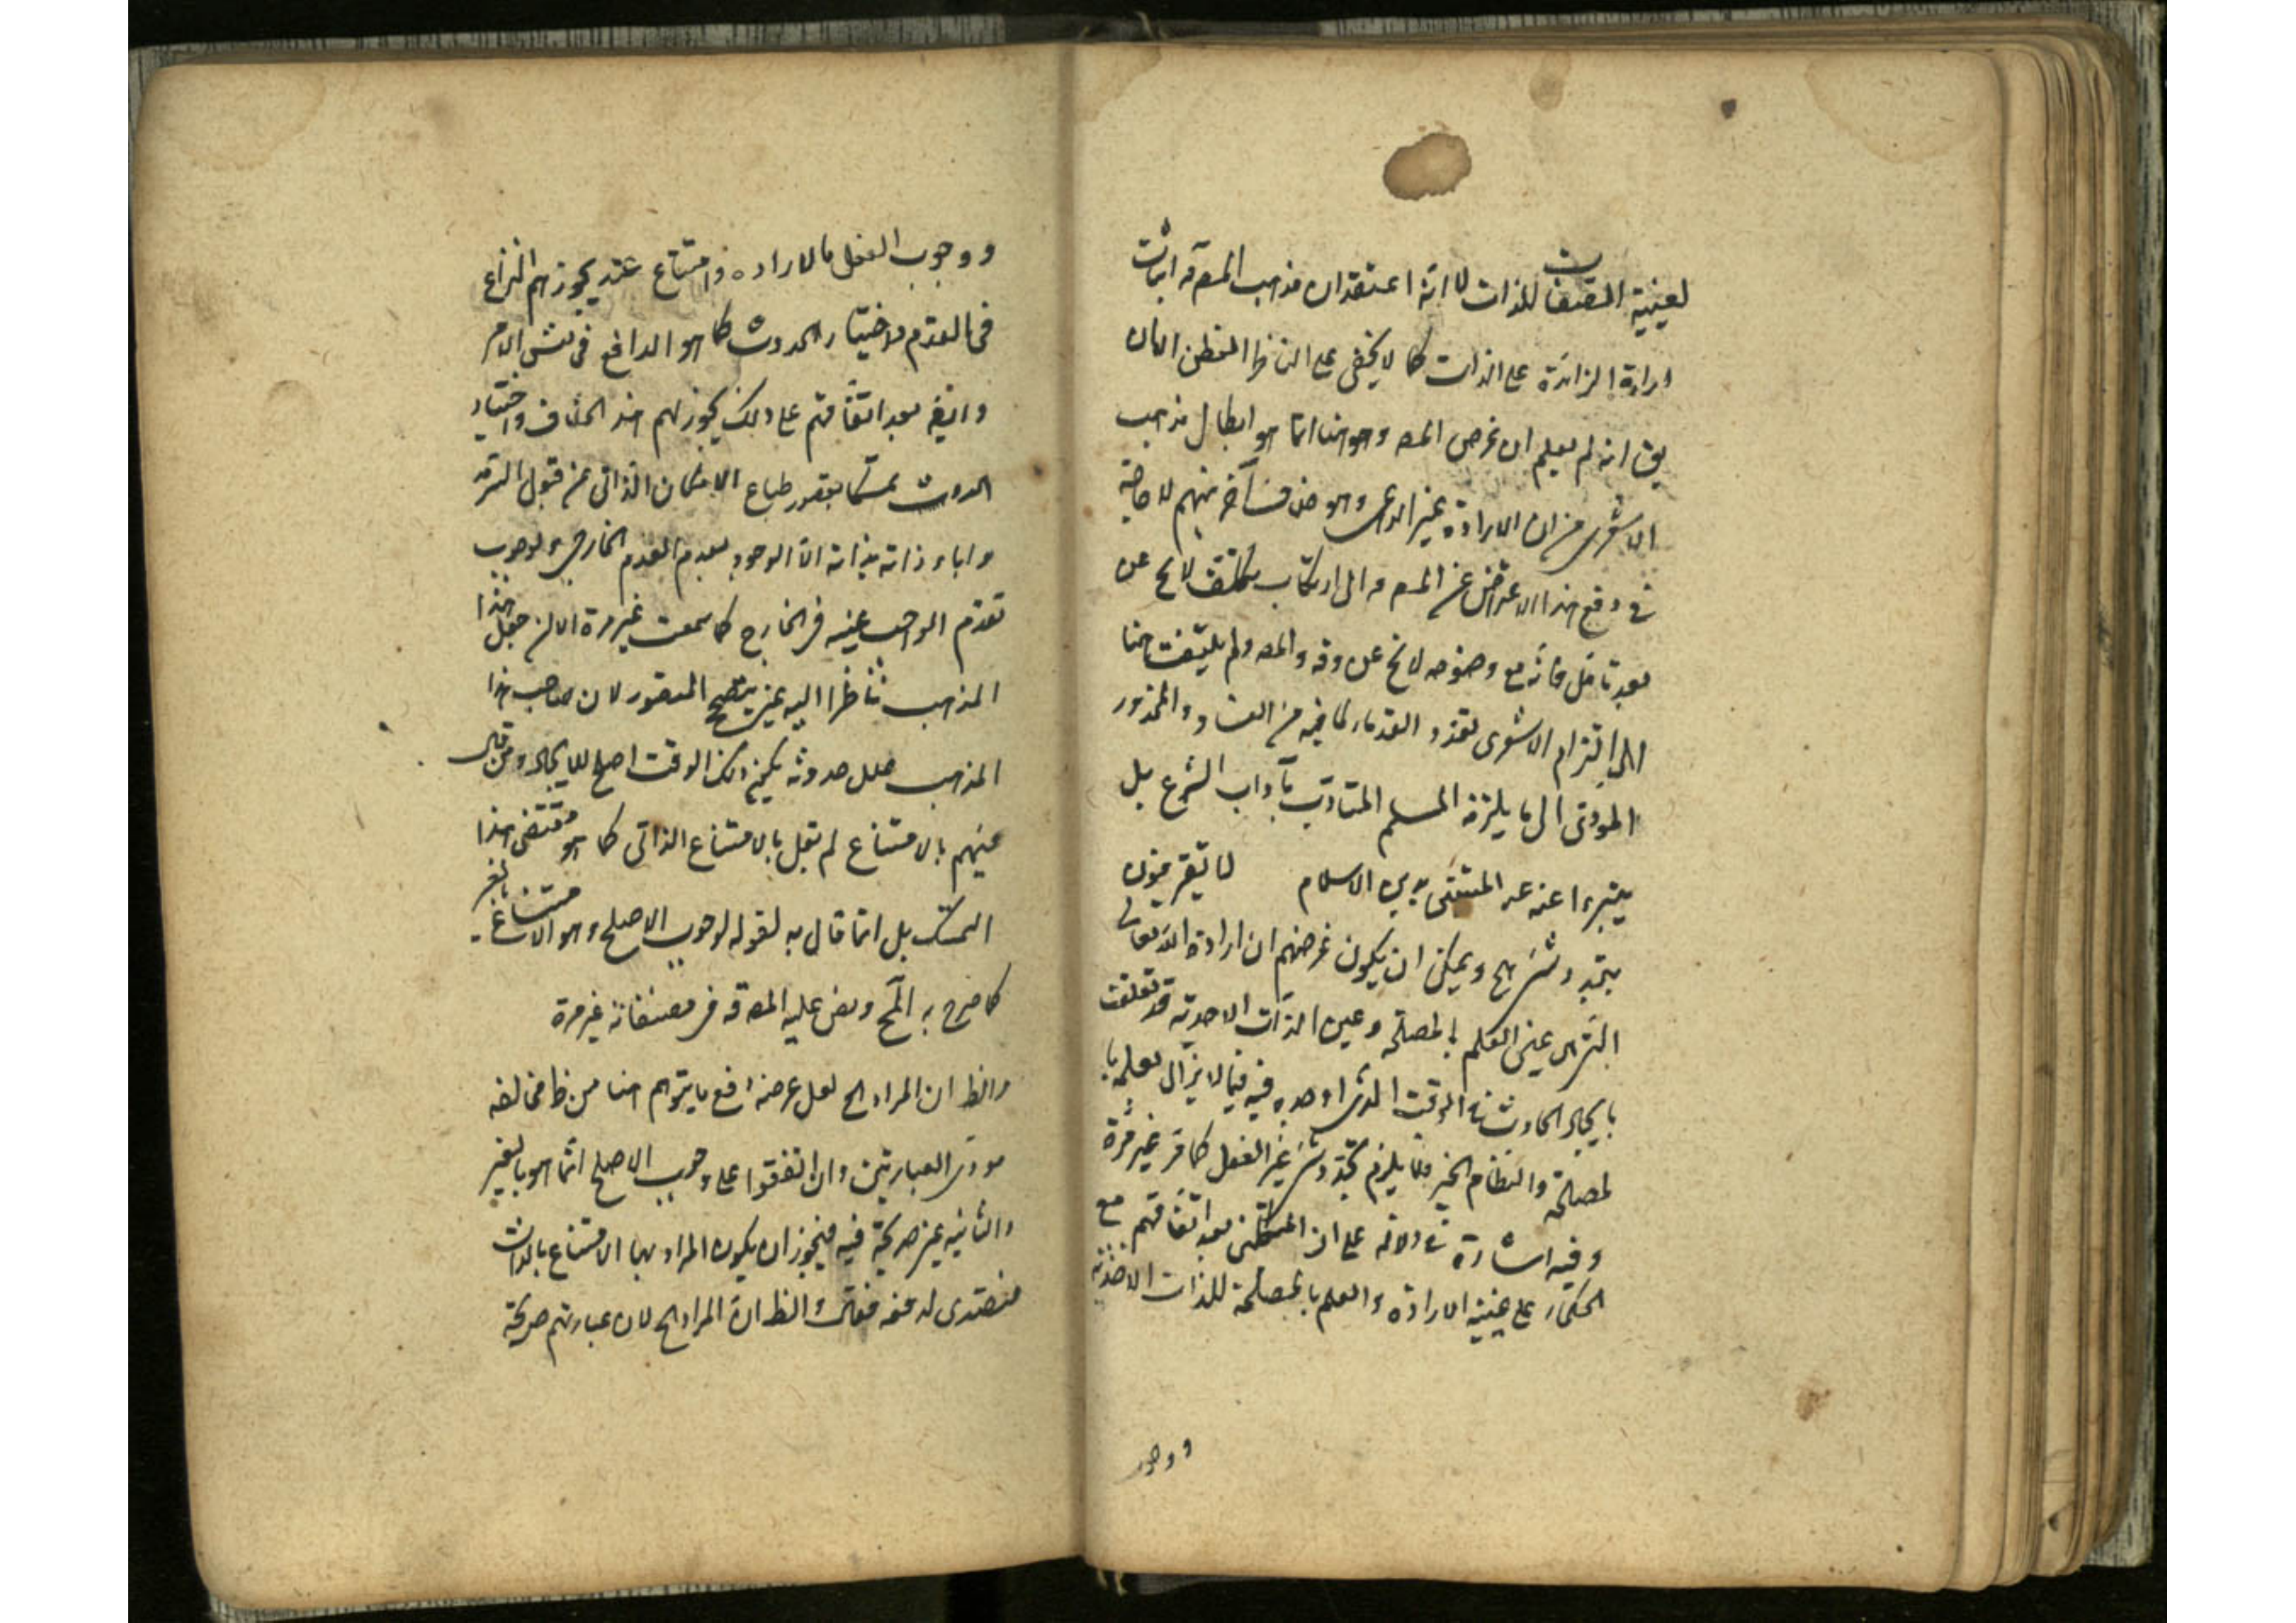 لعينية الصفات للذات لا انه اعتقد ان مذهب المص قه اثبات
ارادة الزائدة على الذات كما لا يخفى على الناظر المفطن الا ان
يق انه لم يعلم ان غرض المص وهو هنا انما هو ابطال مذهب
الاشعرى من ان الارادة غير الداعى وهو منهم لا حاجة
فى دفع هذا الاعتراض عن المص قه الى ارتكاب تكلف لائح عن
بعد تامل فانه مع وضوحه لائح عن والمص ولم يلتفت هنا
الى التزام الاشعرى تعدد القدماء لما فيه من الفساد والمحذور
المودى الى ما يلتزمه المسلم المتادب بآداب الشرع بل
يتبرء اعنه بدين الاسلام لا
ويمكن ان يكون غرضهم ان ارادة الله تعالى
التى هى عين العلم بالمصلحة وعين الذات الاحدية قد تعلقت
بايجاد الحادث فى الوقت الذى اوجده فيه فيما لا يزال لعلمه با
لمصلحة والنظام الخير فلا يلزم عن الفعل كما مر غير مرة
وفيه اشارة دلالة على ان المتكلمين بعد اتفاقهم مع
الحكماء على عينية الارادة والعلم بالمصلحة للذات الاحدية
ووجو
ووجوب الفعل بالارادة وامتناع عنه يجوز لهم النزاع
فى القدم والاختيار الحدوث كما هو الواقع فى نفس الامر
وايضا بعد اتفاقهم على ذلك يجوز لهم هذا الخلاف واختيار
الحدوث تمسكا بقصور طباع الامكان الذاتى عن قبول السرمد
واباء ذاته بذاته الا الوجود بعدم العدم الخارجى ووجوب
تقدم الواجب عينه فى الخارج كما سمعت غير مرة الا ان جعل هذا
المذهب ناظرا اليه غير المقصور لان صاحب هذا
المذهب علل حدوثه بكون ذلك الوقت اصلح للايجاد ومن قال
منهم بالامتناع لم يقل بالامتناع الذاتى كما هو مقتضى هذا
التمسك بل انما قال به لقوله لوجوب الاصلح وهو الامتناع بالغير
كما صرح به المح ونص عليه المص قه فى مصنفاته غير مرة
والظ ان المراد الح لعل غرضه دفع ما يتوهم هنا من ظ مخالفه
مودى العبارتين وان اتفقوا على وجوب الاصلح انما هو بالغير
والثانيه غير صريحة فيه فيجوز ان يكون المراد بها الامتناع بالذات
فتصدى لدفعه فقال والظ ان المراد الح لان عبارتهم صريحة